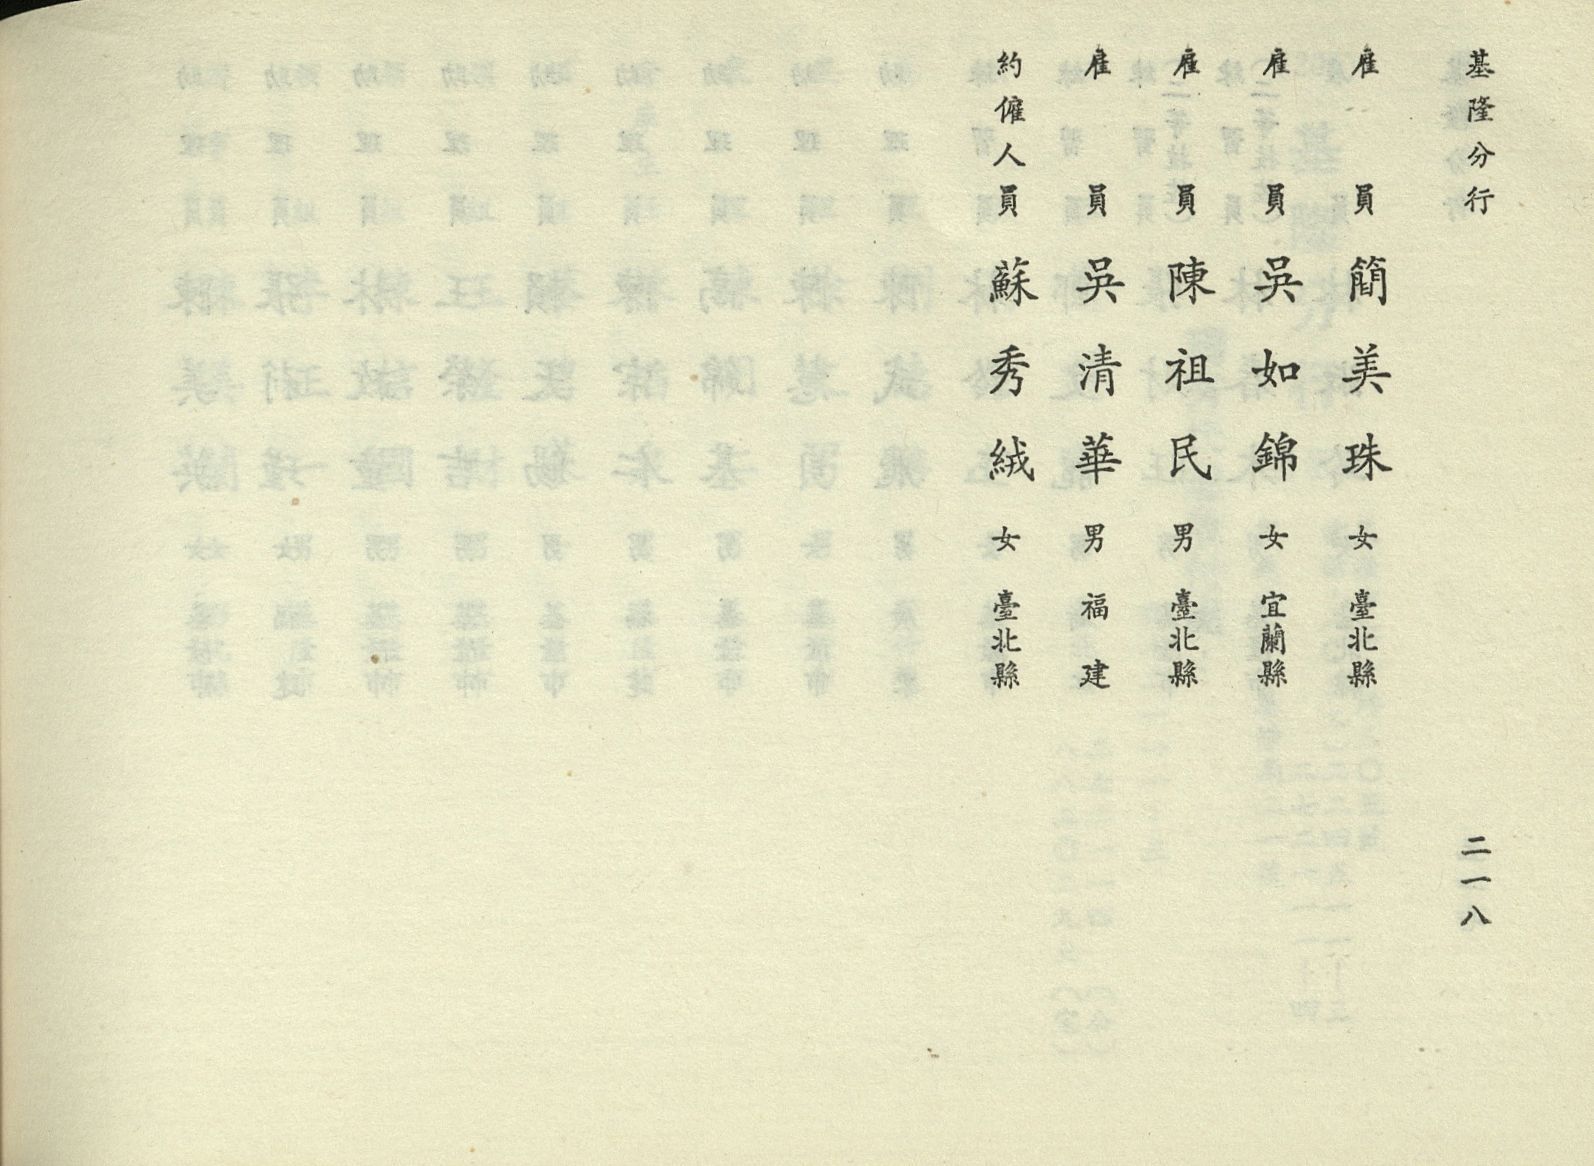 基隆分行
二一八
雇員 簡美珠 女 臺北縣
雇員 吳如錦 女 宜蘭縣
雇員 陳祖民 男 臺北縣
雇員 吳清華 男 福建
約僱人員 蘇秀絨 女 臺北縣